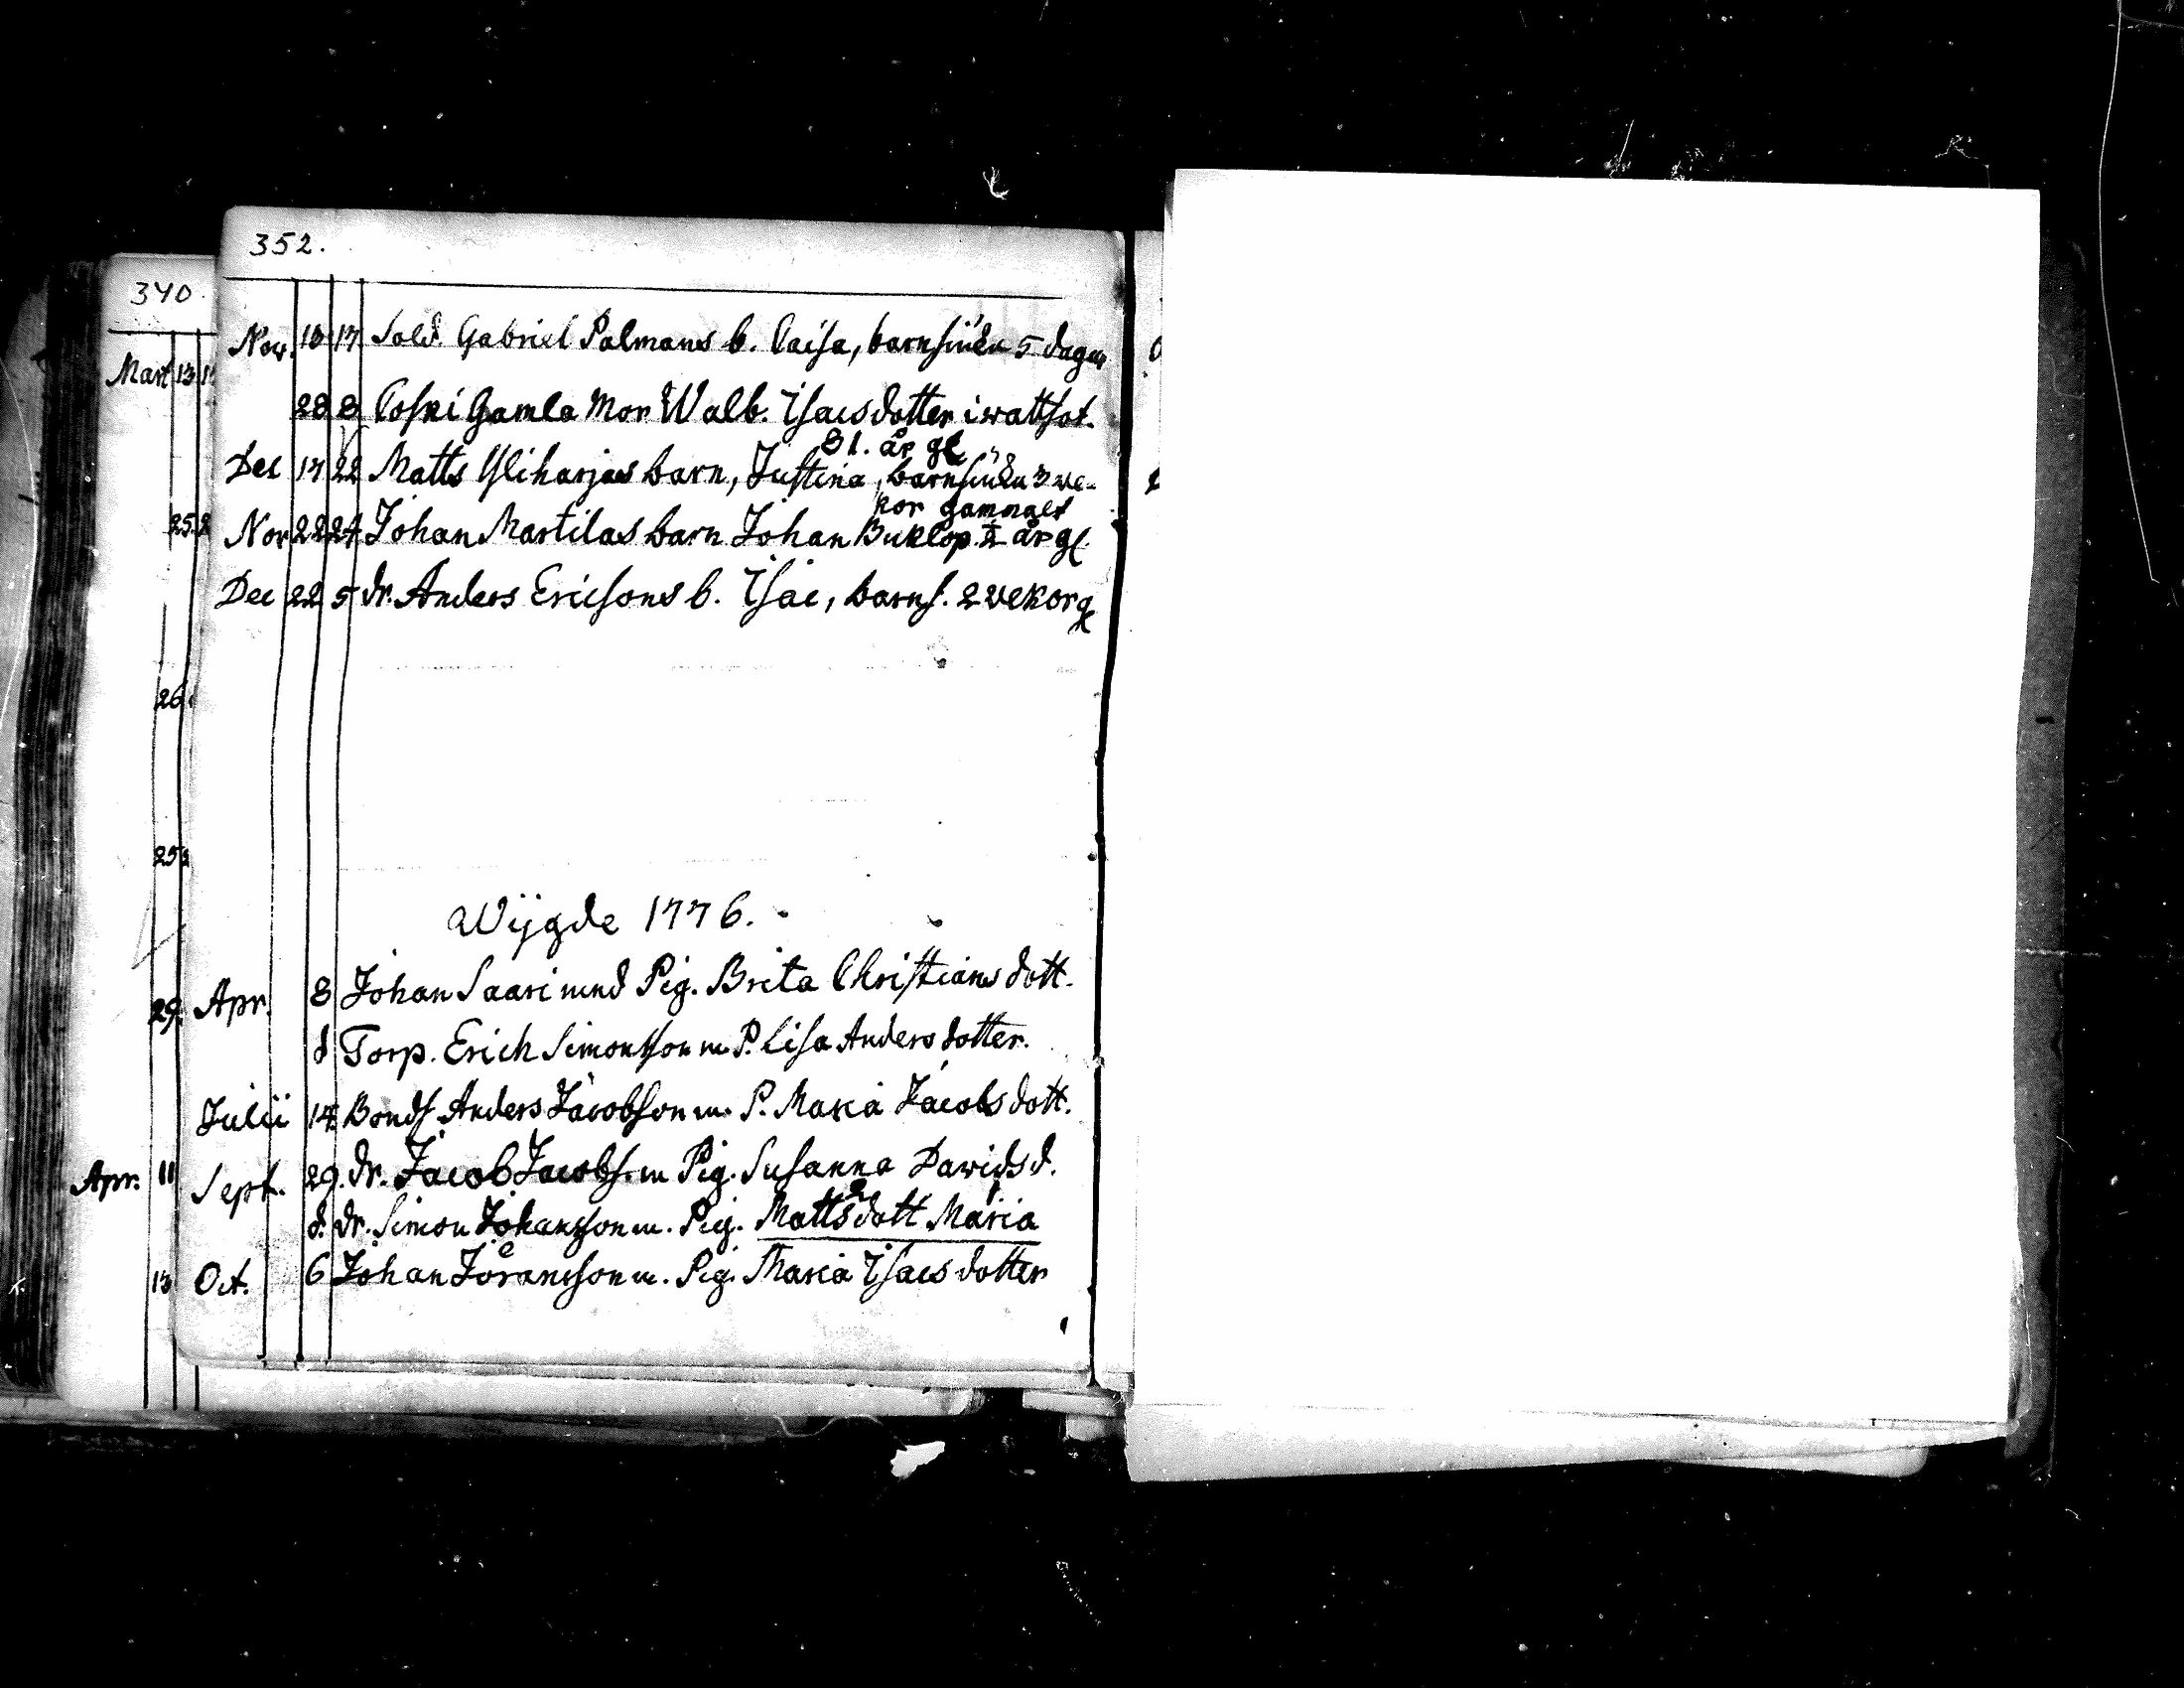 352.
Nov. 10 17 Sold. Gabriel Palmans b. Caisa, barnsiukn 5 dagar
28 8 Coski Gamla Mor Walb. Isacsdotter i wattsot.
81. år gl
Dec 17 22 Matts Yliharjas barn, Justina, barnsiukn 3 we-
kor gammalt
Nov 22 24 Johan Martilas barn Johan Buklop. år gl.
Dec 22 5 dr. Anders Ericsons b. Isac, barns. 2 wekor gl
Wijgde 1776.
Apr. 8 Johan Saari med Pig. Brita Christiansdott.
d Torp. Erich Simonsson m. P. Lisa Andersdotter.
Julii 14 Bonds. Anders Jacobson m. P. Maria Jacobsdott.
Sept. 29. dr. Jacob Jacobs. m Pig. Susanna Dawidsd.
d. dr. Simon Johansson m. Pig. Mattsdott Maria
Oct. 6 Johan Jöransson m. Pig. Maria Isacsdotter
340
Mart 13
25
26
25
29
Apr. 11
13